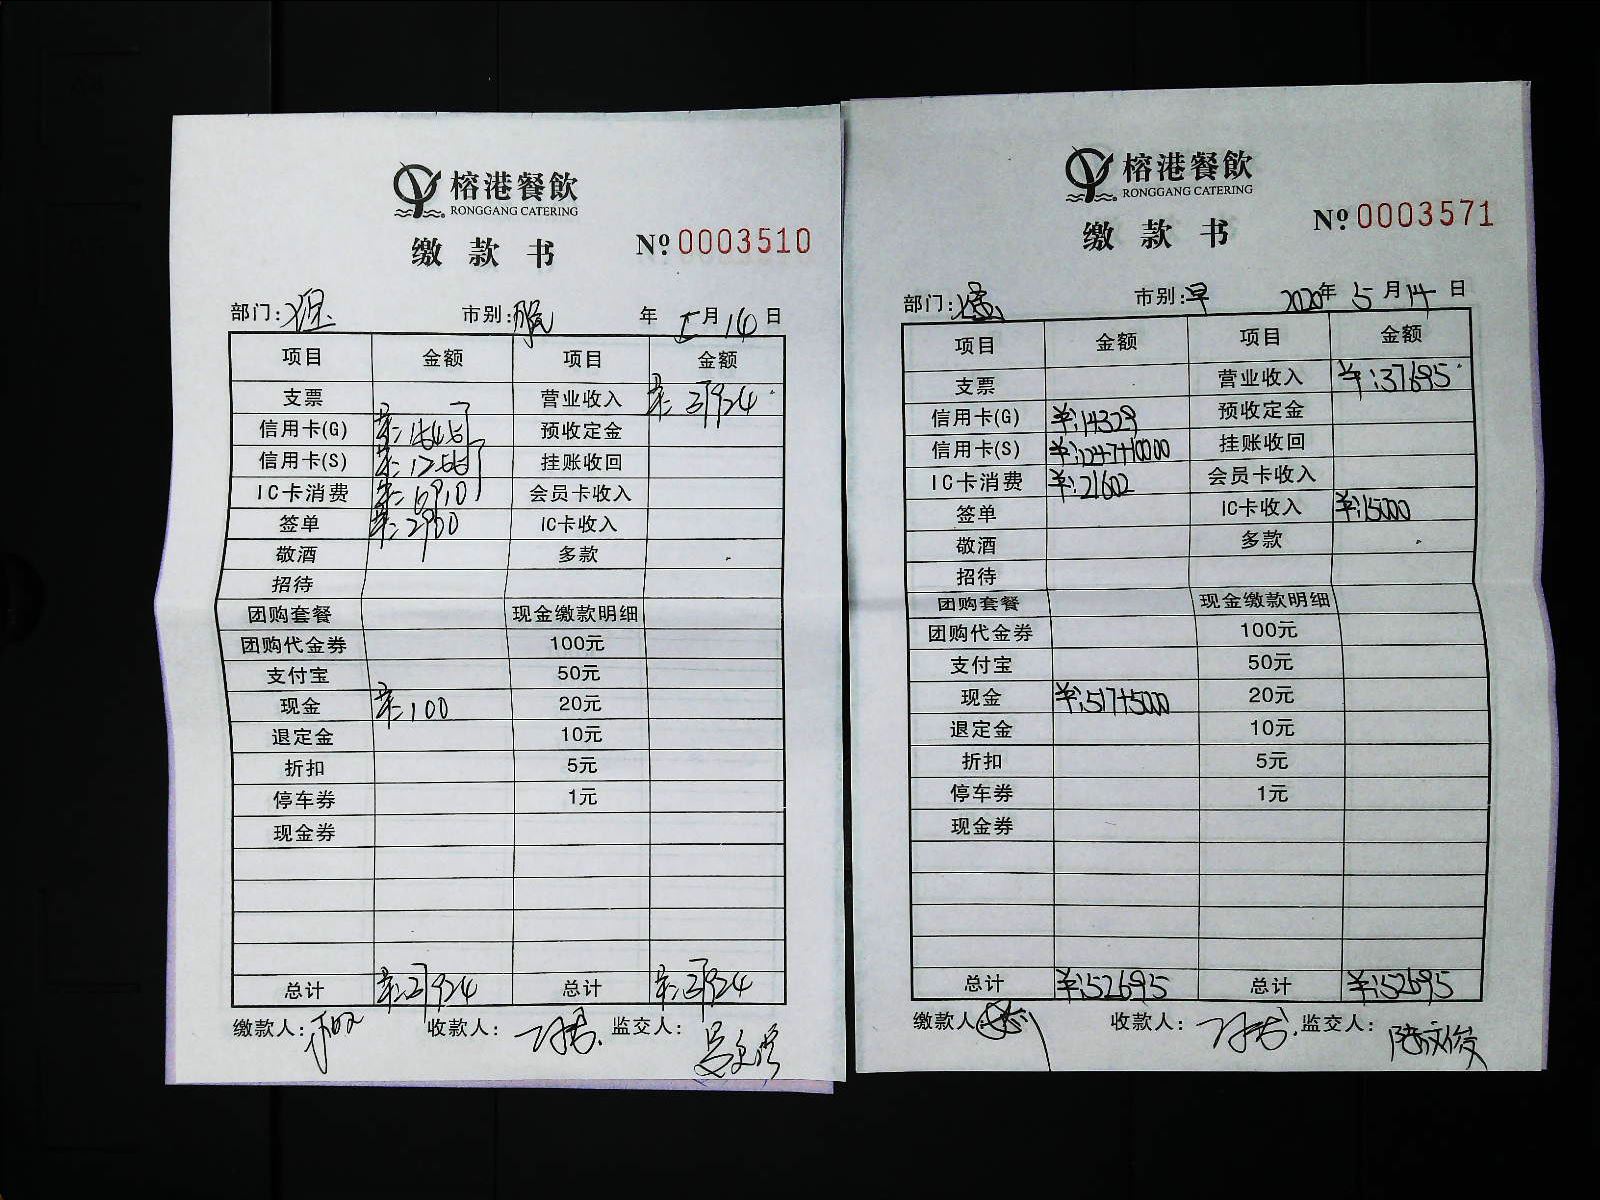 榕港餐飲
RONGGANG CATERING
缴款书 №0003510
部门: 市别: 年 5月14日
项目 金额 项目 金额
支票 营业收入
信用卡(G) 预收定金
信用卡(S) 挂账收回
IC卡消费 会员卡收入
签单 IC卡收入
敬酒 多款
招待
团购套餐 现金缴款明细
团购代金券 100元
支付宝 50元
现金 ¥:100 20元
退定金 10元
折扣 5元
停车券 1元
现金券
总计 总计
缴款人: 收款人: 监交人:
榕港餐飲
RONGGANG CATERING
缴款书 №0003571
部门: 市别:早 2020年5月14日
项目 金额 项目 金额
支票 营业收入 ¥:37695
信用卡(G) ¥:14329 预收定金
信用卡(S) ¥:1247+10000 挂账收回
IC卡消费 ¥:21602 会员卡收入
签单 IC卡收入 ¥:15000
敬酒 多款
招待
团购套餐 现金缴款明细
团购代金券 100元
支付宝 50元
现金 ¥:517+5000 20元
退定金 10元
折扣 5元
停车券 1元
现金券
总计 ¥:52695 总计 ¥:52695
缴款人: 收款人: 监交人:陆文俊